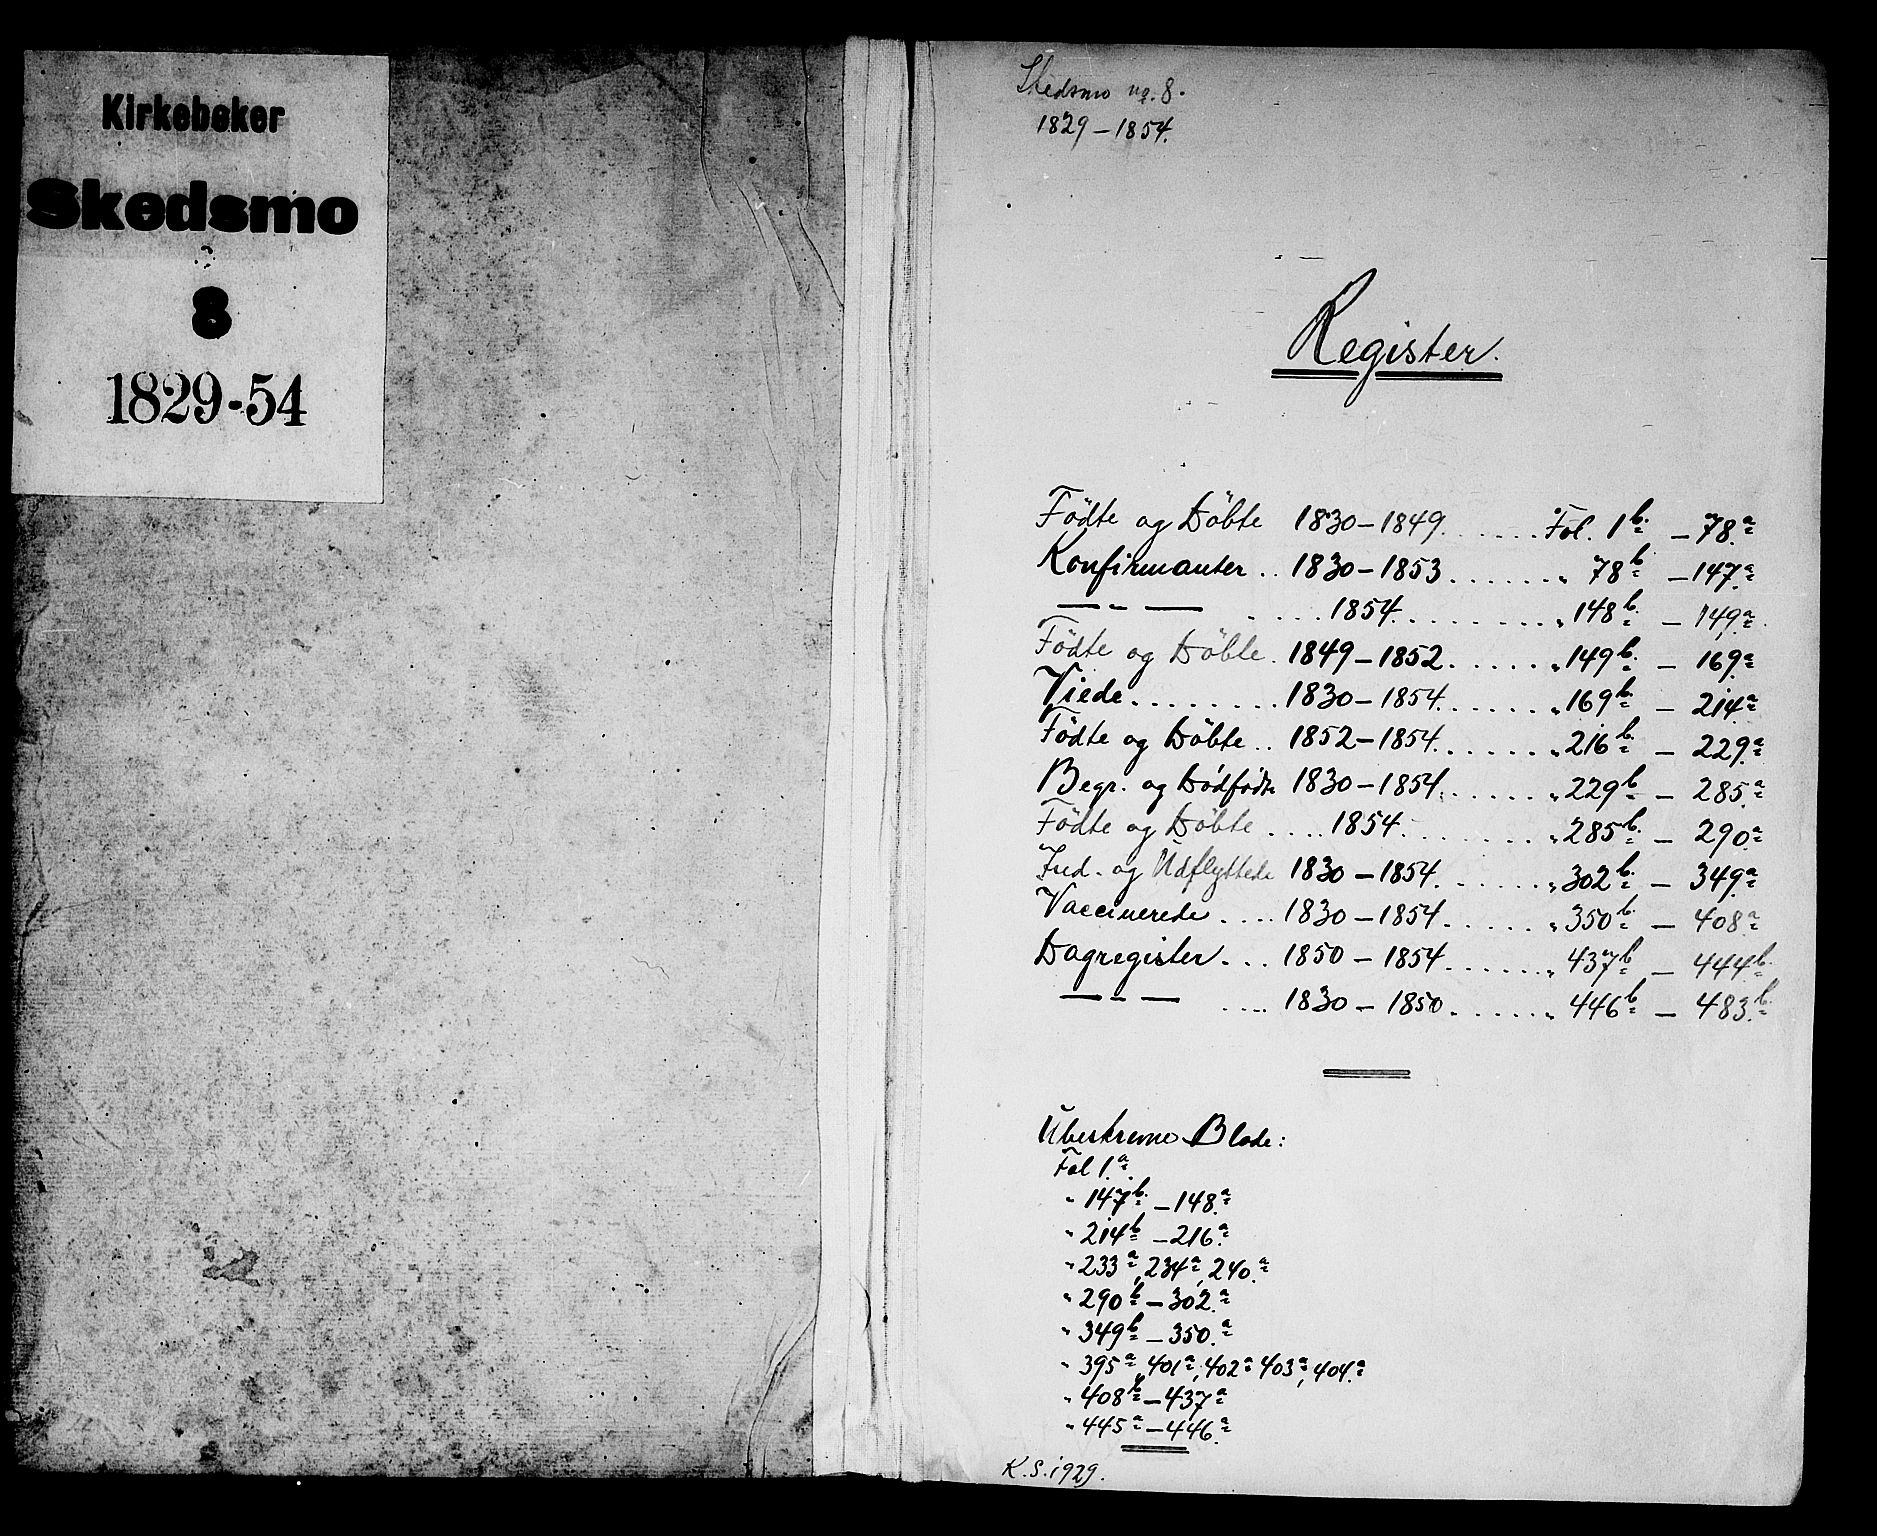 Kirkebøker
Skedsmo
8
1829-54
Skedsmo no. 8.
1829 – 1854.
Register.
Födte og Döbte 1830 – 1849. ...... Fol. 1b. – 78.a
Konfirmanter .. 1830 – 1853 ....... „ 78b. – 147.a
— „ — .... 1854. ......... „ 148b. – 149.a
Födte og Döbte. 1849 – 1852. ...... „ 149b. – 169.a
Viede ........ 1830 – 1854. ...... „ 169b. – 214.a
Födte og Döbte .. 1852 – 1854. ...... „ 216b. – 229.a
Begr. og Dödfödte 1830 – 1854. ...... „ 229b – 285.a
Födte og Döbte .... 1854. ........ „ 285b. – 290.a
Ind- og Udflyttede 1830 – 1854. ...... „ 302b. – 349.a
Vaccinerede .... 1830 – 1854. ...... „ 350b. – 408a
Dagregister. ... 1850 – 1854. ...... „ 437b – 444b.
— „ — .... 1830 – 1850. ...... „ 446b – 483.b.
Ubeskrevne Blade:
Fol 1.a
„ 147b. – 148.a
„ 214b – 216.a
„ 233a, 234a, 240.a
„ 290b – 302.a
„ 349b – 350.a
„ 395a, 401a, 402a 403a, 404.a
„ 408b – 437a
„ 445a – 446.a
K.S. 1929.